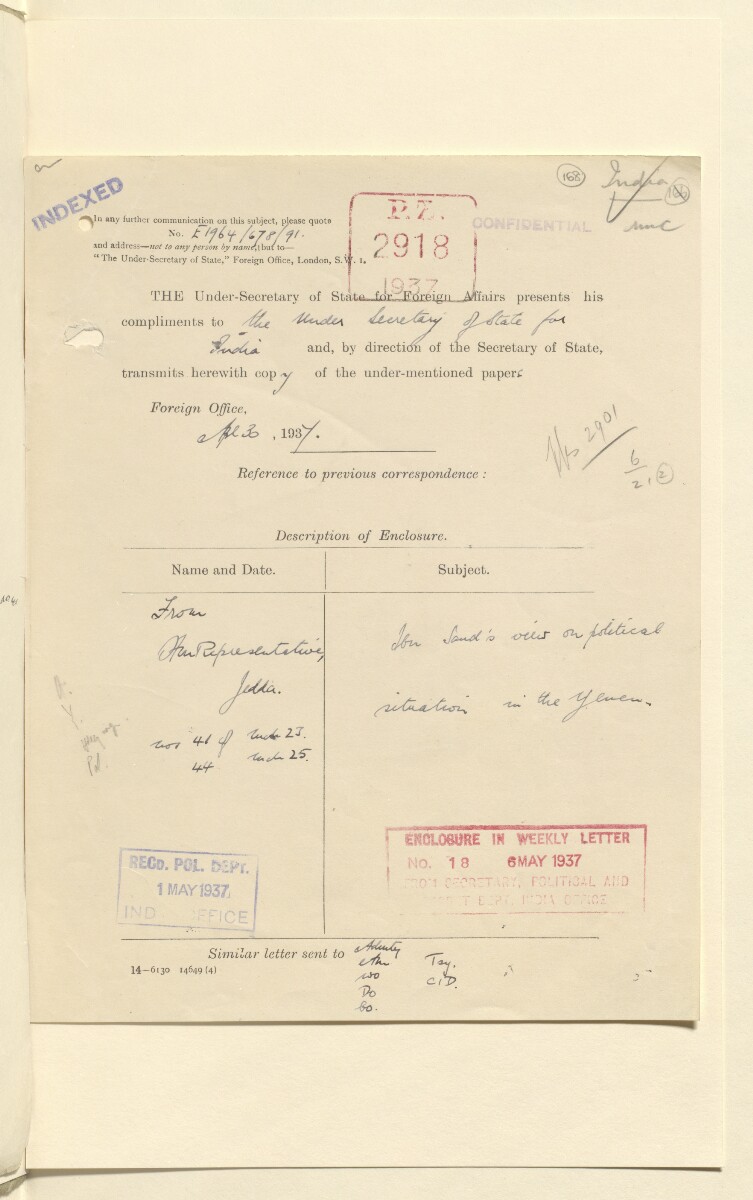 168
India
INDEXED
In any further communication on this subject, please quote
No. E1964/678/91.
and address—not to any person by name, but to—
"The Under-Secretary of State," Foreign Office, London, S.W. 1.
P.Z.
2918
1937
CONFIDENTIAL
THE Under-Secretary of State for Foreign Affairs presents his
compliments to the Under Secretary of State for
India and, by direction of the Secretary of State,
transmits herewith copy of the under-mentioned paper.
Foreign Office,
30, 1937.
2901
6
2
Reference to previous correspondence :
Description of Enclosure.
Name and Date.
Subject.
From
Representative,
Jedda.
nos 41 of 23.
44 25.
Ibn Saud's view on political
situation in the Yemen.
REGD. POL. DEPT.
1 MAY 1937
INDIA OFFICE
ENCLOSURE IN WEEKLY LETTER
No. 18 6 MAY 1937
FROM SECRETARY, POLITICAL AND
DEPT. INDIA OFFICE
Similar letter sent to Admlty
WO
DO
CO.
Tsy.
CID.
14—6130 14649 (4)